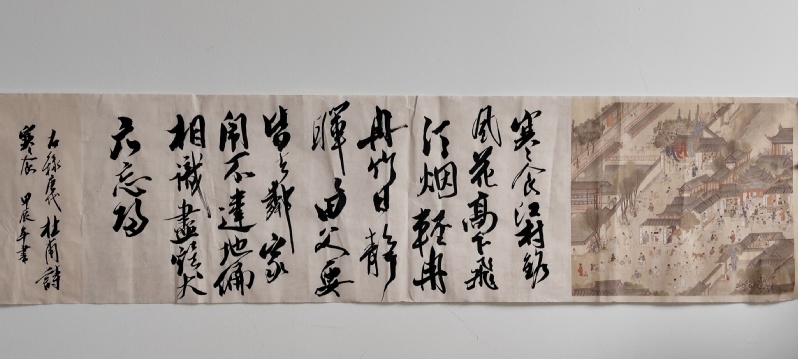 寒食江村路
風花高下飛
汀烟輕冉
冉竹日靜
暉々田父要
皆去鄰家
鬧不違地偏
相識盡鷄犬
亦忘歸
右錄唐代杜甫詩
寒食 甲辰年書